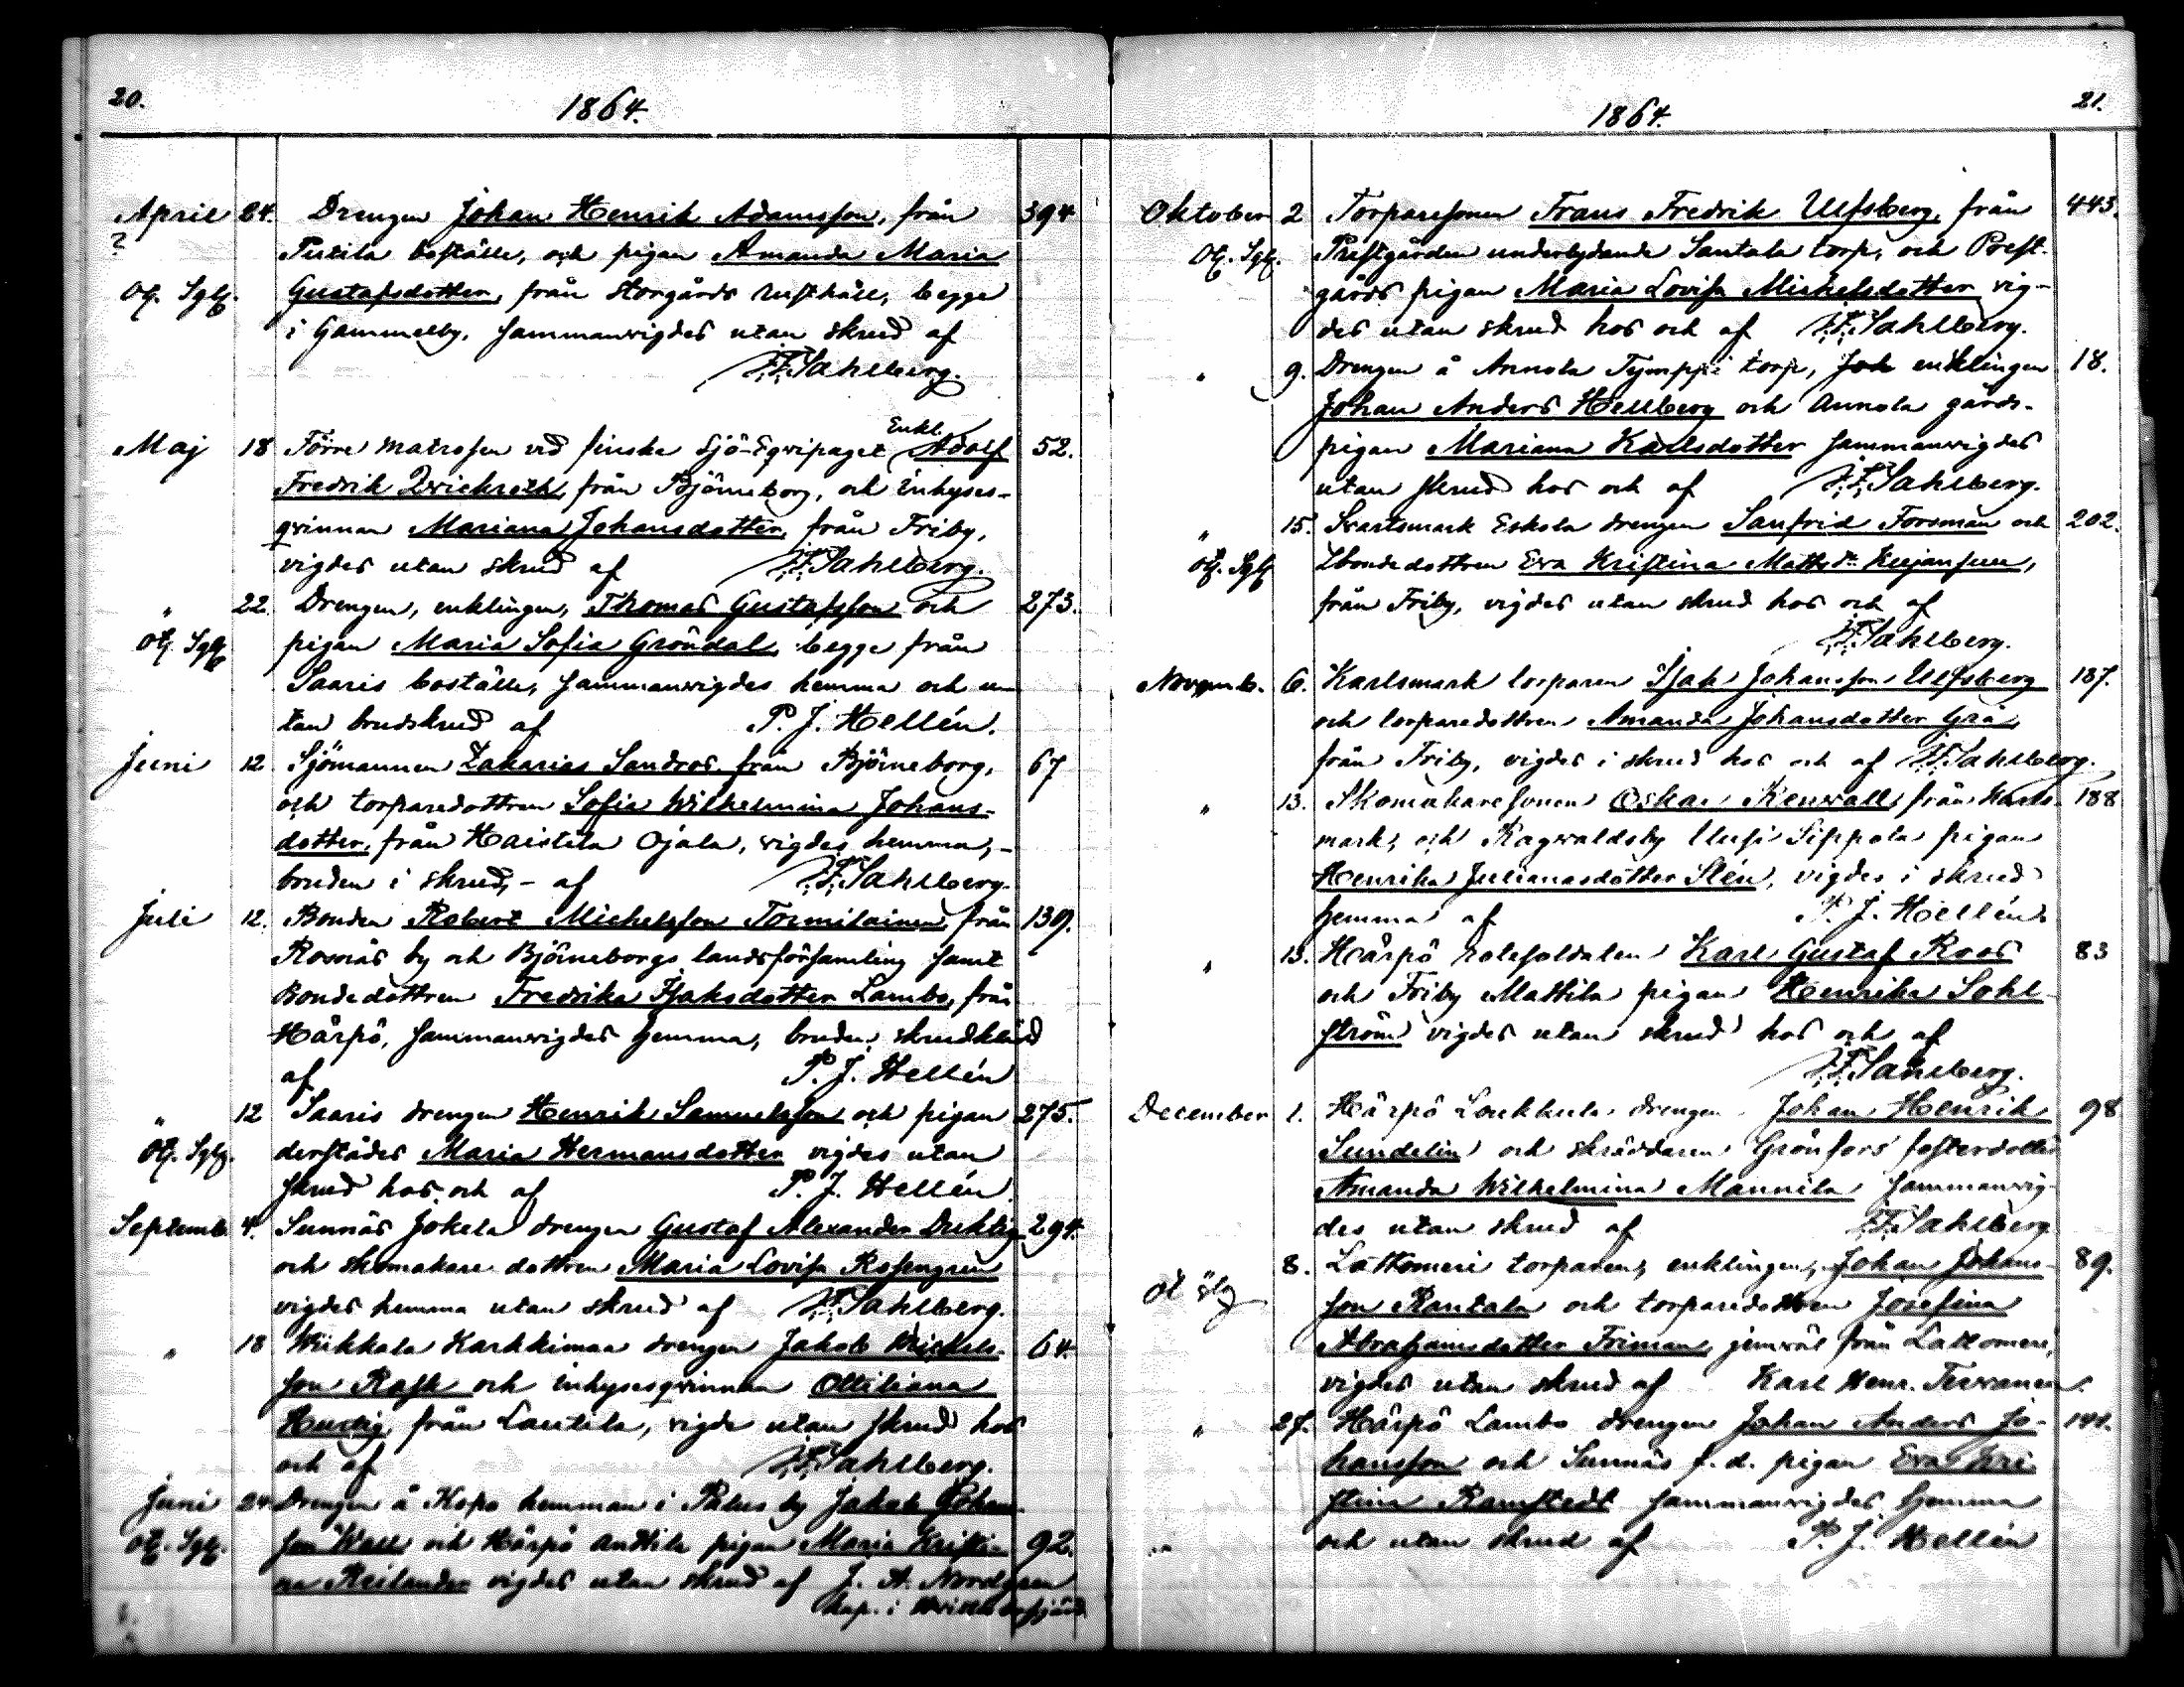 20.
1864.
April 24. Drengen Johan Henrik Adamsson, från 394
? boställe, och pigan Amanda Maria
Gustafsdotter, från Storgårds rusthåll, begge
i Gammelby, sammanvigdes utan skrud af
F. Sahlberg.
Enkl.
Maj 18 Förre matrosen vid finska Sjö-Eqvipaget Adolf 52.
Fredrik från Björneborg, och inhyses-
qvinnan Mariana Johansdotter, från Friby,
vigdes utan skrud af F. Sahlberg.
" 22. Drengen, enklingen, Thomas Gustafsson och 273.
pigan Maria Sofia Gröndal, begge från
Saaris boställe, sammanvigdes hemma och u-
tan brudskrud af P. J. Hellén.
Juni 12 Sjömannen Zakarias Sandros från Björneborg, 67
och torparedottren Sofia Wilhelmina Johans-
dotter, från Haistila Ojala, vigdes hemma, -
bruden i skrud, - af F. Sahlberg.
Juli 12. Bonden Robert Michelsson Tormilainen, från 139.
Rosnäs by och Björneborgs landsförsamling samt
Bondedottren Fredrika Isaksdotter Lambo, från
Hårpö, sammanvigdes hemma, bruden skrudkläd
af P. J. Hellén
" 12 Saaris drengen Henrik Samuelsson och pigan 275.
derstädes Maria Hermansdotter vigdes utan
skrud hos och af P. J. Hellén.
Septemb. 4. Sunnäs Jokela drengen Gustaf Alexander Duktig 294.
och skomakare dottren Maria Lovisa Rosengren
vigdes hemma utan skrud af F. Sahlberg.
" 18 Wikkala Karhkimaa drengen Jakob Michels- 64.
son Rask och inhysesqvinnan Ottiliana
från Lautila, vigde utan skrud hos
och af F. Sahlberg.
Juni 24 Drengen å Kopo hemman i Palus by Jakob Johans-
son Wall och Hårpö Anttila pigan Maria Kristi- 92.
na Reilander vigdes utan skrud af J. A. Nordgren
kap. i
21.
1864.
Oktober 2 Torparesonen Frans Fredrik Ulfsberg, från 443.
Prestgården underlydande Santala torp, och Prest-
gårds pigan Maria Lovisa Michelsdotter vig-
des utan skrud hos och af F. Sahlberg.
" 9. Drengen å Annola Tymppi torp, enklingen 18.
Johan Anders Hellberg och Annola gårds-
pigan Mariana Karlsdotter sammanvigdes
utan skrud hos och af F. Sahlberg.
" 15. Svartsmark Eskola drengen Sanfrid Forsman och 202.
bondedottren Eva Kristina Mattsdr Kujansuu,
från Friby, vigdes utan skrud hos och af
F. Sahlberg.
Novemb. 6. Karlsmark torparen Isak Johansson Ulfsberg 187.
och torparedottren Amanda Johansdotter Grå,
från Friby, vigdes i skrud hos och af F. Sahlberg.
" 13. Skomakaresonen Oskar Renvall, från Karls- 188
mark, och Ragvaldsby Uusi Sippola pigan
Henrika Julianasdotter Slén, vigdes i skrud
hemma af P. J. Hellén.
" 13. Hårpö rotesoldaten Karl Gustaf Roos 83
och Friby Mattila pigan Henrika Sohl-
ström vigdes utan skrud hos och af
F. Sahlberg.
December 1. Hårpö Loukkula drengen Johan Henrik 98
Sundelin och skräddaren Grönfors' fosterdotter
Amanda Wilhelmina Mannila sammanvig-
des utan skrud af F. Sahlberg
8. Lattomeri torparen, enklingen, Johan Johans- 89.
son Rantala och torparedottren Josefina
Abrahamsdotter Friman, jemväl från Lattomeri,
vigdes utan skrud af Karl Henr. Terranen.
" 27. Hårpö Lambo drengen Johan Anders Jo- 141.
hansson och Sunnäs f.d. pigan Eva Kri-
stina Ramstedt sammanvigdes hemma
och utan skrud af P. J. Hellén